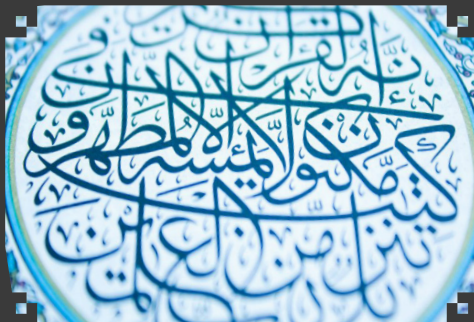 إنه لقرآن كريم في
كتب مكنون لا يمسه إلا المطهرون
تنزيل من رب العلمين